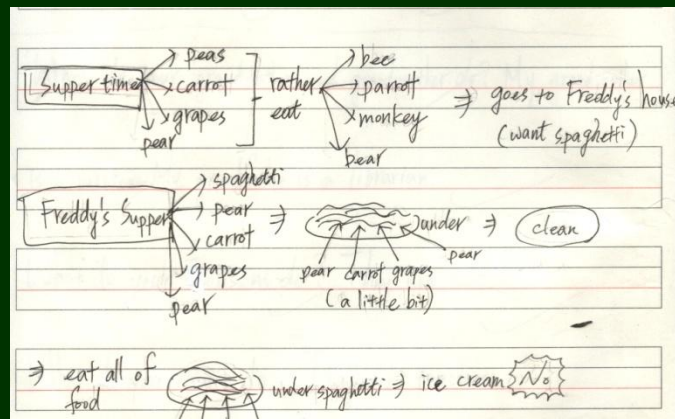 Supper time
peas
carrot
grapes
pear
rather eat
bee
parrott
monkey
bear
⇒ goes to Freddy's house
(want spaghetti)
Freddy's Supper
spaghetti
pear
carrot
grapes
pear
⇒
under
pear carrot grapes
pear
(a little bit)
⇒ clean
⇒ eat all of food
under spaghetti ⇒ ice cream No